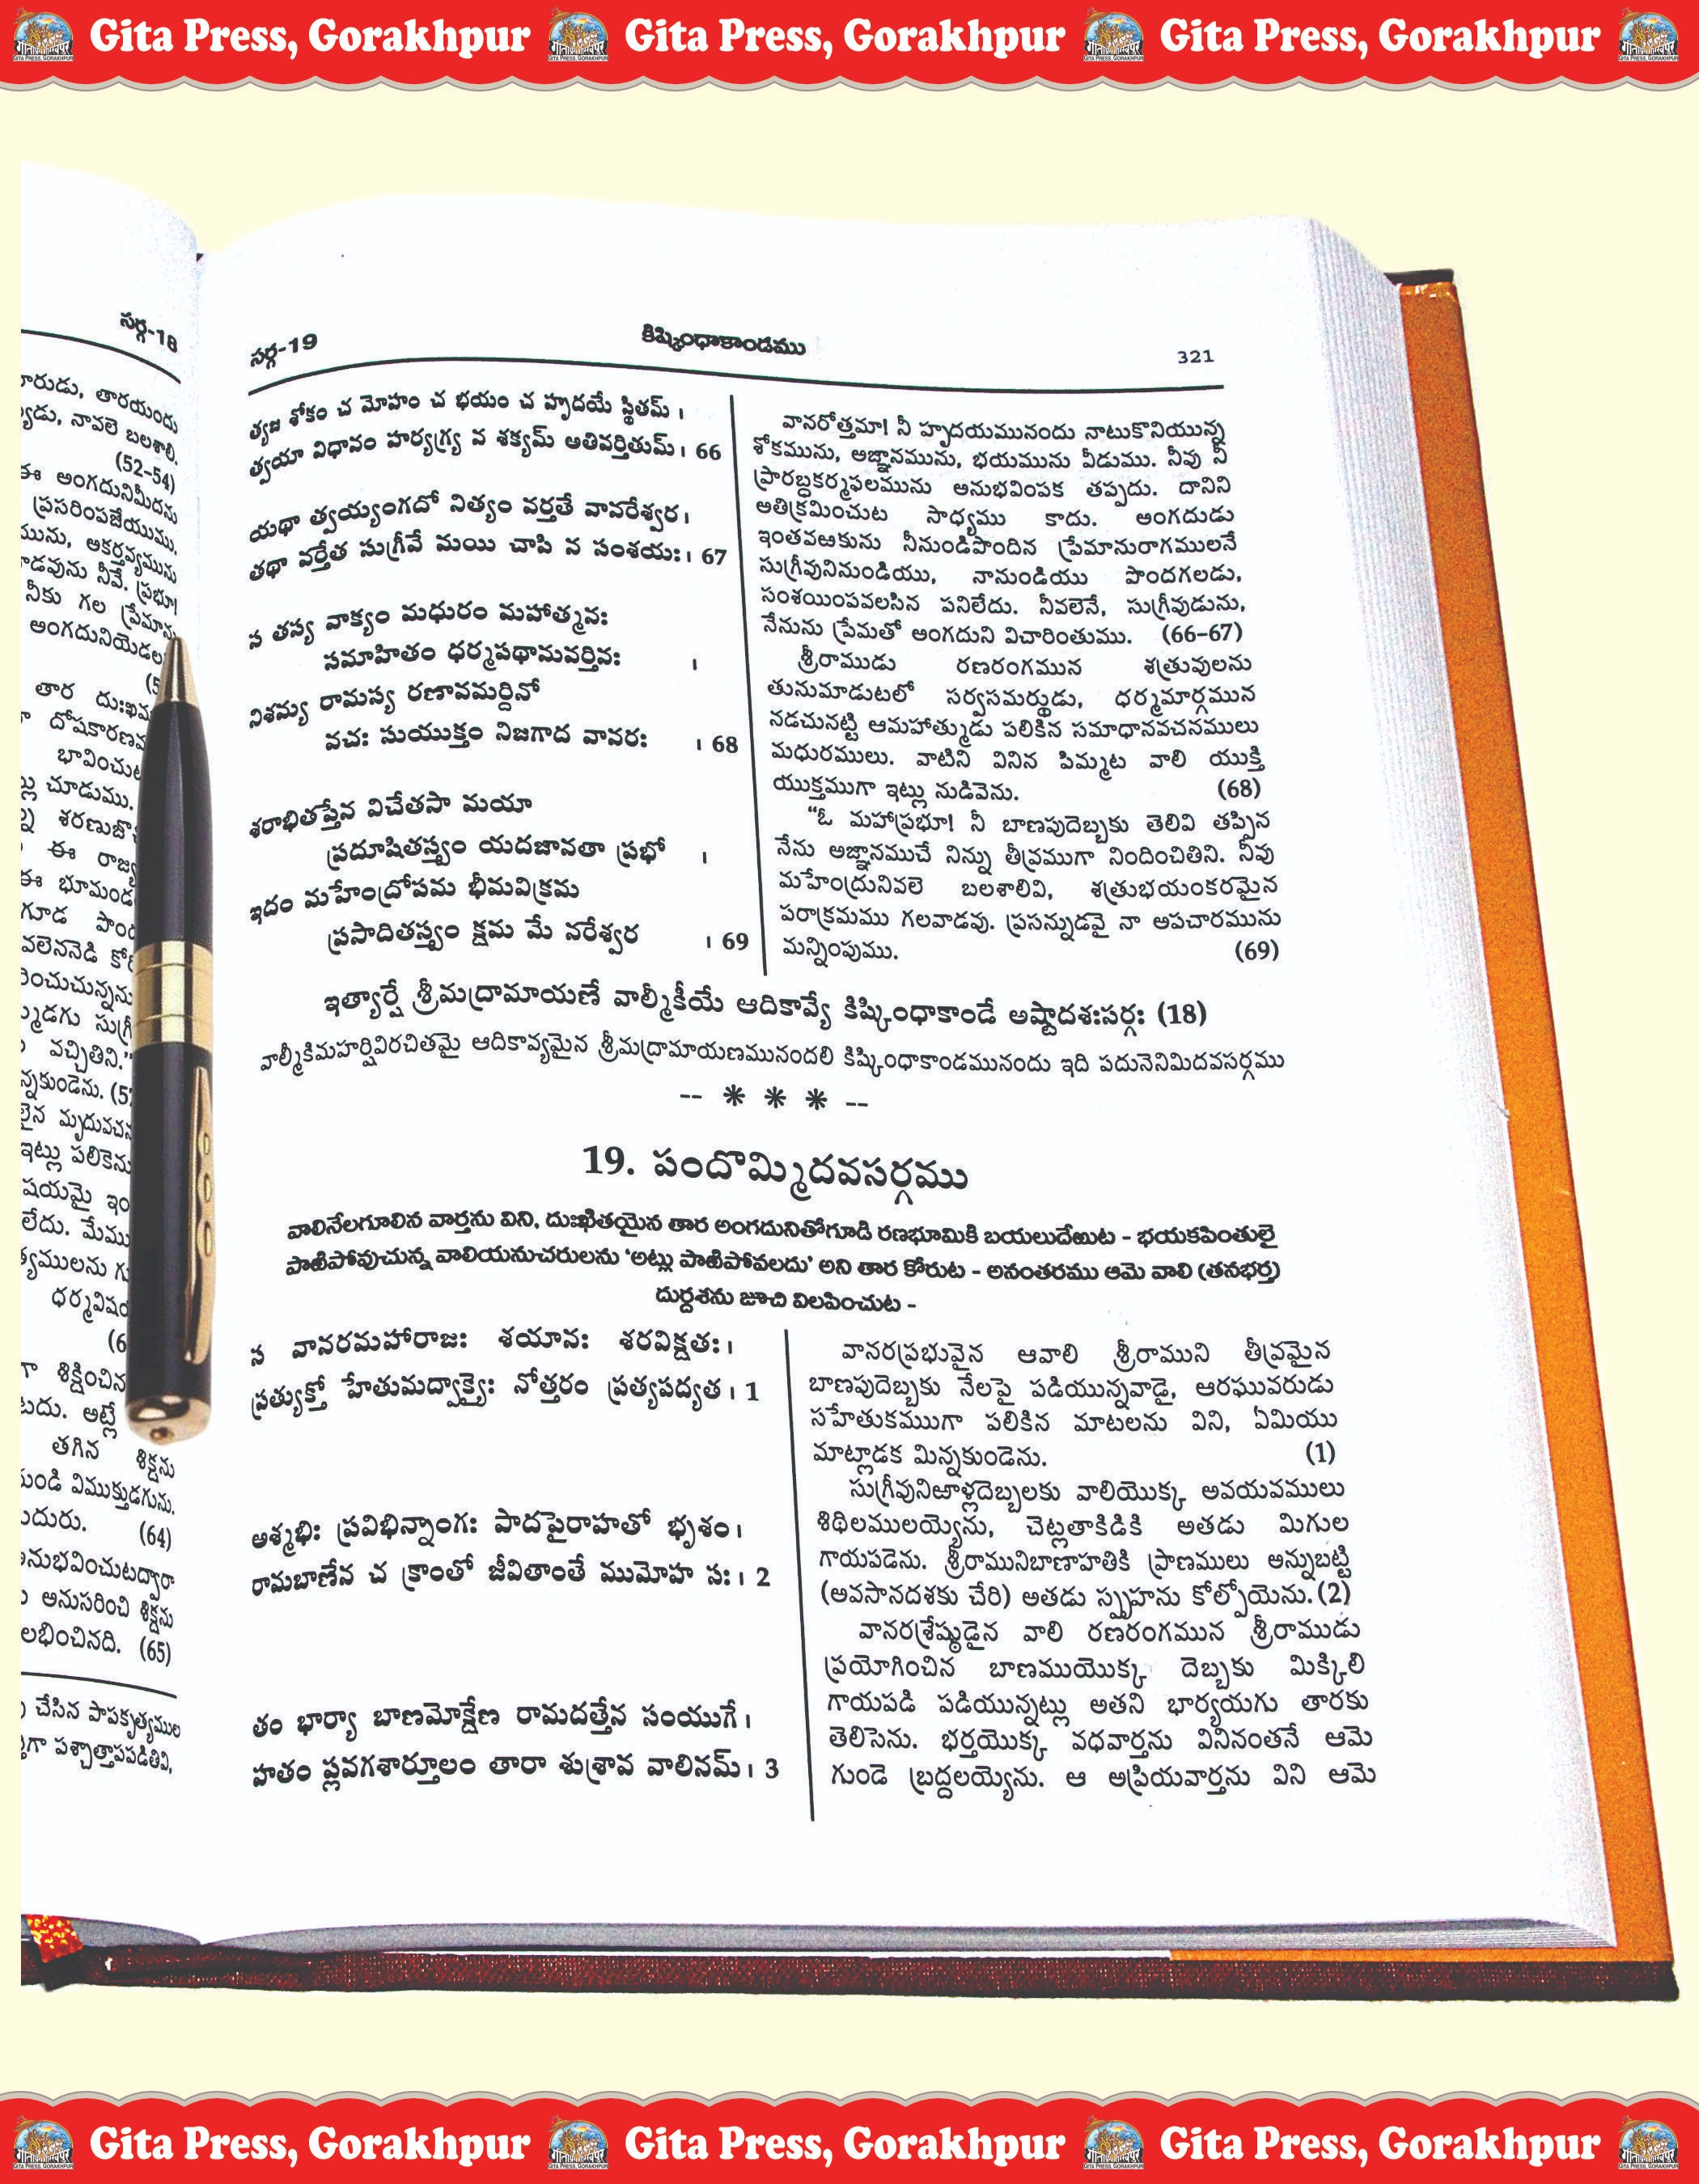 Gita Press, Gorakhpur Gita Press, Gorakhpur Gita Press, Gorakhpur
సర్గ-18
(52-54)
ఈ అంగదునిమీదను
ప్రసరింపజేయుము.
నీకు గల
అంగదునియెడల
తార
భావించుట
చూడుము.
ఈ
ఈ
వచ్చితిని."
ఇట్లు పలికెను
లేదు. మేము
శిక్షించిన
అట్లే
తగిన శిక్షను
విముక్తుడగును.
(64)
అనుసరించి శిక్షను
లభించినది. (65)
చేసిన పాపకృత్యముల
పశ్చాత్తాపపడితివి,
సర్గ-19 కిష్కింధాకాండము 321
త్యజ శోకం చ మోహం చ భయం చ హృదయే స్థితమ్ ।
త్వయా విధానం హర్యగ్ర్య న శక్యమ్ అతివర్తితుమ్। 66
యథా త్వయ్యంగదో నిత్యం వర్తతే వానరేశ్వర।
తథా వర్తేత సుగ్రీవే మయి చాపి న సంశయః। 67
స తస్య వాక్యం మధురం మహాత్మనః
సమాహితం ధర్మపథానువర్తినః ।
నిశమ్య రామస్య రణావమర్దినో
వచః సుయుక్తం నిజగాద వానరః । 68
శరాభితప్తేన విచేతసా మయా
ప్రదూషితస్త్వం యదజానతా ప్రభో ।
ఇదం మహేంద్రోపమ భీమవిక్రమ
ప్రసాదితస్త్వం క్షమ మే నరేశ్వర । 69
వానరోత్తమా! నీ హృదయమునందు నాటుకొనియున్న
శోకమును, అజ్ఞానమును, భయమును వీడుము. నీవు నీ
ప్రారబ్ధకర్మఫలమును అనుభవింపక తప్పదు. దానిని
అతిక్రమించుట సాధ్యము కాదు. అంగదుడు
ఇంతవఱకును నీనుండిపొందిన ప్రేమానురాగములనే
సుగ్రీవునినుండియు, నానుండియు పొందగలడు,
సంశయింపవలసిన పనిలేదు. నీవలెనే, సుగ్రీవుడును,
నేనును ప్రేమతో అంగదుని విచారింతుము. (66-67)
శ్రీరాముడు రణరంగమున శత్రువులను
తునుమాడుటలో సర్వసమర్థుడు, ధర్మమార్గమున
నడచునట్టి ఆమహాత్ముడు పలికిన సమాధానవచనములు
మధురములు. వాటిని వినిన పిమ్మట వాలి యుక్తి
యుక్తముగా ఇట్లు నుడివెను. (68)
"ఓ మహాప్రభూ! నీ బాణపుదెబ్బకు తెలివి తప్పిన
నేను అజ్ఞానముచే నిన్ను తీవ్రముగా నిందించితిని. నీవు
మహేంద్రునివలె బలశాలివి, శత్రుభయంకరమైన
పరాక్రమము గలవాడవు. ప్రసన్నుడవై నా అపచారమును
మన్నింపుము. (69)
ఇత్యార్షే శ్రీమద్రామాయణే వాల్మీకీయే ఆదికావ్యే కిష్కింధాకాండే అష్టాదశఃసర్గః (18)
వాల్మీకిమహర్షివిరచితమై ఆదికావ్యమైన శ్రీమద్రామాయణమునందలి కిష్కింధాకాండమునందు ఇది పదునెనిమిదవసర్గము
-- * * * --
19. పందొమ్మిదవసర్గము
వాలినేలగూలిన వార్తను విని, దుఃఖితయైన తార అంగదునితోగూడి రణభూమికి బయలుదేఱుట - భయకపింతులై
పాఱిపోవుచున్న వాలియనుచరులను 'అట్లు పాఱిపోవలదు' అని తార కోరుట - అనంతరము ఆమె వాలి (తనభర్త)
దుర్దశను జూచి విలపించుట -
స వానరమహారాజః శయానః శరవిక్షతః।
ప్రత్యుక్తో హేతుమద్వాక్యైః నోత్తరం ప్రత్యపద్యత। 1
అశ్మభిః ప్రవిభిన్నాంగః పాదపైరాహతో భృశం।
రామబాణేన చ క్రాంతో జీవితాంతే ముమోహ సః। 2
తం భార్యా బాణమోక్షేణ రామదత్తేన సంయుగే।
హతం ప్లవగశార్దూలం తారా శుశ్రావ వాలినమ్। 3
వానరప్రభువైన ఆవాలి శ్రీరాముని తీవ్రమైన
బాణపుదెబ్బకు నేలపై పడియున్నవాడై, ఆరఘువరుడు
సహేతుకముుగా పలికిన మాటలను విని, ఏమియు
మాట్లాడక మిన్నకుండెను. (1)
సుగ్రీవునిఱాళ్లదెబ్బలకు వాలియొక్క అవయవములు
శిథిలములయ్యెను, చెట్లతాకిడికి అతడు మిగుల
గాయపడెను. శ్రీరామునిబాణాహతికి ప్రాణములు అన్నుబట్టి
(అవసానదశకు చేరి) అతడు స్పృహను కోల్పోయెను. (2)
వానరశ్రేష్ఠుడైన వాలి రణరంగమున శ్రీరాముడు
ప్రయోగించిన బాణముయొక్క దెబ్బకు మిక్కిలి
గాయపడి పడియున్నట్లు అతని భార్యయగు తారకు
తెలిసెను. భర్తయొక్క వధవార్తను వినినంతనే ఆమె
గుండె బ్రద్దలయ్యెను. ఆ అప్రియవార్తను విని ఆమె
Gita Press, Gorakhpur Gita Press, Gorakhpur Gita Press, Gorakhpur